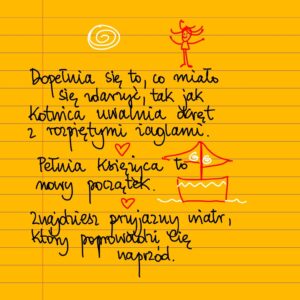 Dopełnia się to, co miało
się zdarzyć, tak jak
Kotwica uwalnia okręt
z rozpiętymi żaglami.
Pełnia Księżyca to
nowy początek.
Znajdziesz przyjazny wiatr,
który poprowadzi Cię
naprzód.